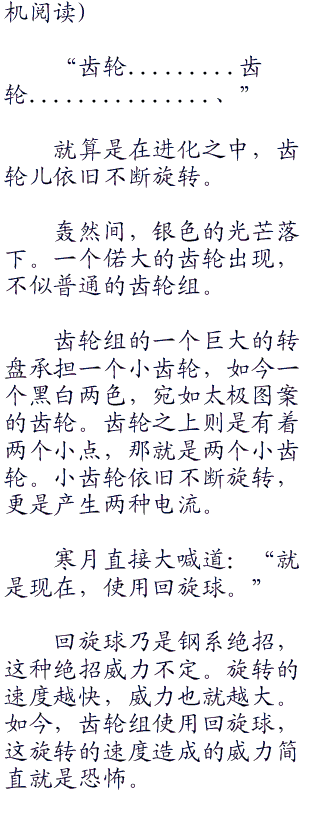 机阅读)
“齿轮.........齿
轮...............、”
就算是在进化之中，齿
轮儿依旧不断旋转。
轰然间，银色的光芒落
下。一个偌大的齿轮出现，
不似普通的齿轮组。
齿轮组的一个巨大的转
盘承担一个小齿轮，如今一
个黑白两色，宛如太极图案
的齿轮。齿轮之上则是有着
两个小点，那就是两个小齿
轮。小齿轮依旧不断旋转，
更是产生两种电流。
寒月直接大喊道：“就
是现在，使用回旋球。”
回旋球乃是钢系绝招，
这种绝招威力不定。旋转的
速度越快，威力也就越大。
如今，齿轮组使用回旋球，
这旋转的速度造成的威力简
直就是恐怖。